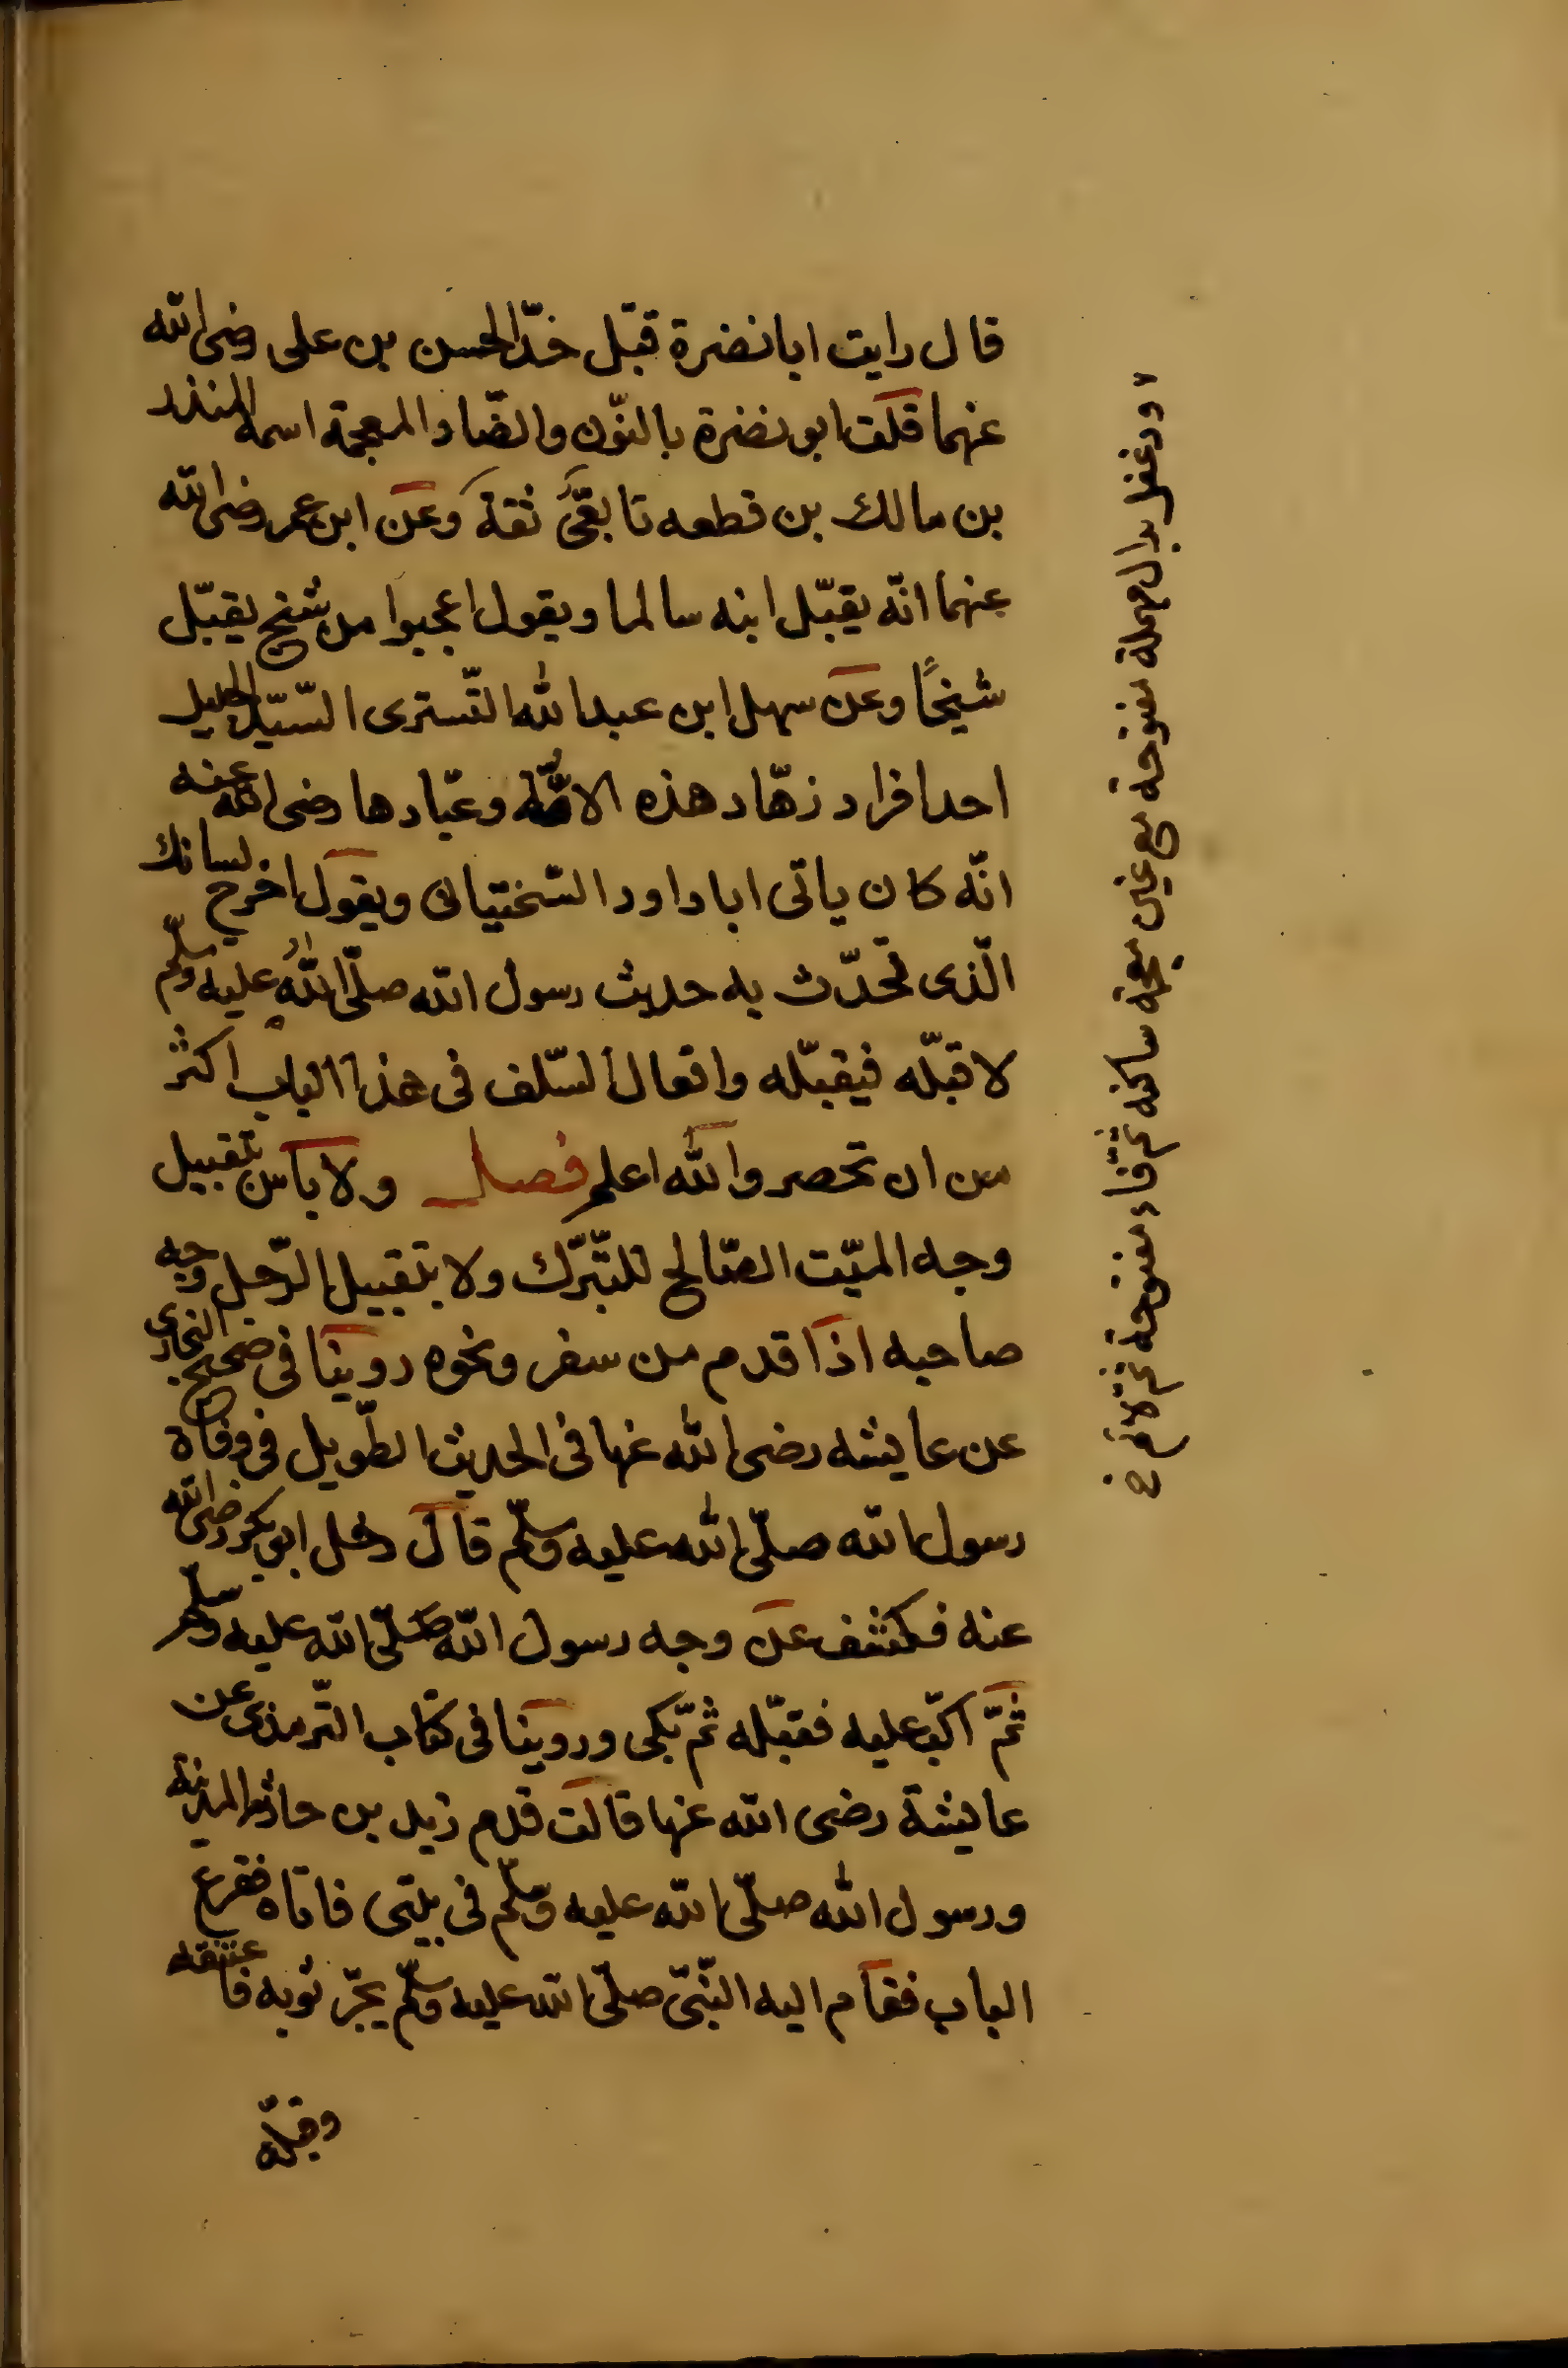 قال رايت ابا نضرة قبّل خدّ الحسن بن على رضى الله
عنهما قلت ابو نضرة بالنّون والضّاد المعجمة اسمه المنذر
بن مالك بن قطعه تابعىّ ثقة وعن ابن عمر رضى الله
عنهما انّه يقبّل ابنه سالما ويقول اعجبوا من شيخ يقبّل
شيخًا وعن سهل ابن عبد الله التّسترى السّيّد الجليل
احد افراد زهّاد هذه الامّة وعبّادها رضى الله عنه
انّه كان ياتى ابا داود السّختيانى ويقول اخرج لسانك
الّذى تحدّث به حديث رسول الله صلّى الله عليه وسلّم
لاقبّله فيقبّله وافعال السّلف فى هذا الباب اكثر
من ان تحصر والله اعلم فصل ولا باس بتقبيل
وجه الميّت الصّالح للتّبرّك ولا بتقبيل الرّجل وجه
صاحبه اذا قدم من سفر ونحوه روينا فى صحيح البخارى
عن عايشه رضى الله عنها فى الحديث الطّويل فى وفاة
رسول الله صلّى الله عليه وسلّم قال دخل ابو بكر رضى الله
عنه فكشف عن وجه رسول الله صلّى الله عليه وسلّم
ثمّ اكبّ عليه فقبّله ثمّ بكى وروينا فى كتاب التّرمذى عن
عايشة رضى الله عنها قالت قدم زيد بن حارثه المدينة
ورسول الله صلّى الله عليه وسلّم فى بيتى فاتاه فقرع
الباب فقام اليه النّبىّ صلّى الله عليه وسلّم يجرّ ثوبه فاعتنقه
وقبّله
ودغفل بدال مهملة مفتوحة مع غين معجمة ساكنه ثمّ فاء مفتوحة ثمّ لام